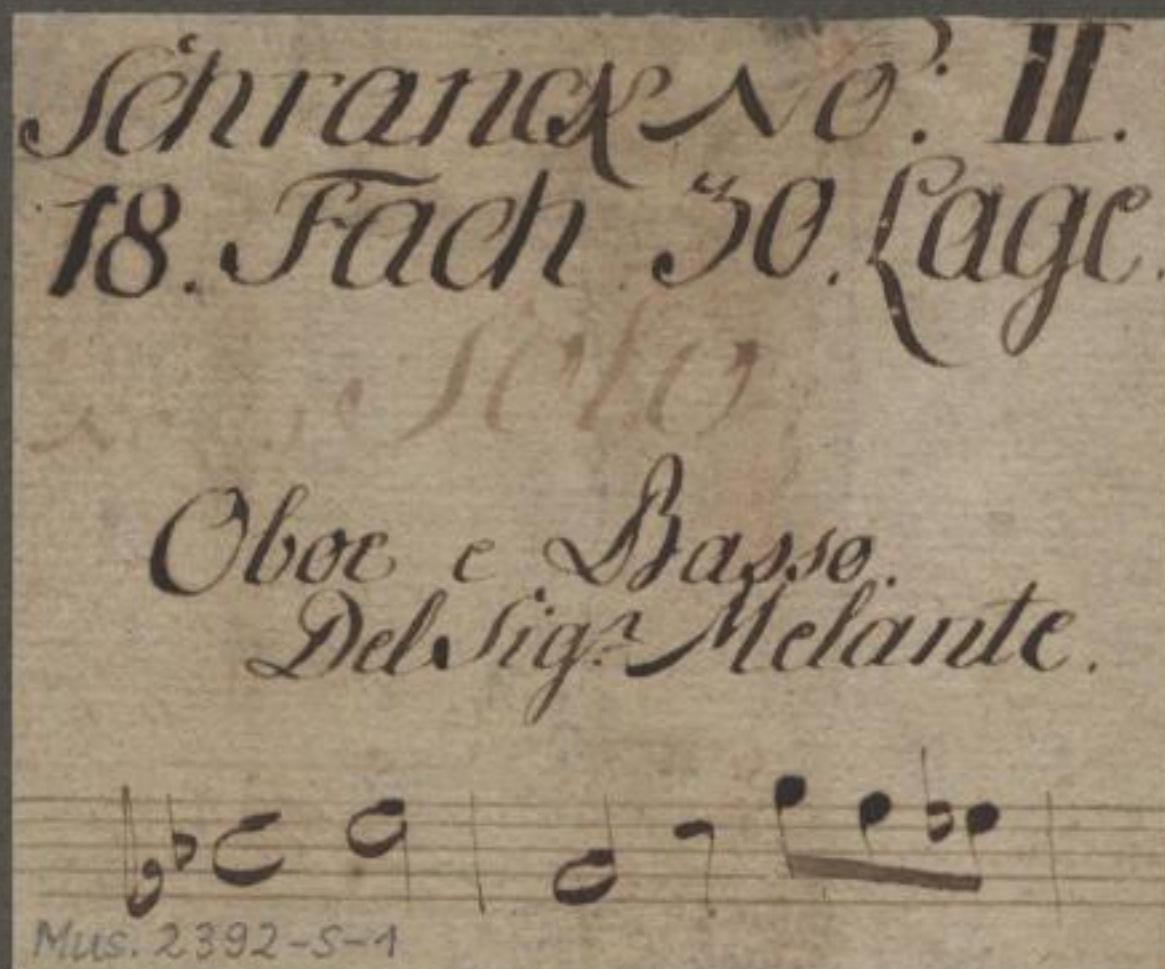 Schranck No: II.
18. Fach 30. Lage.
Solo
Oboe e Basso.
Del Sigr. Melante.
Mus. 2392-S-1